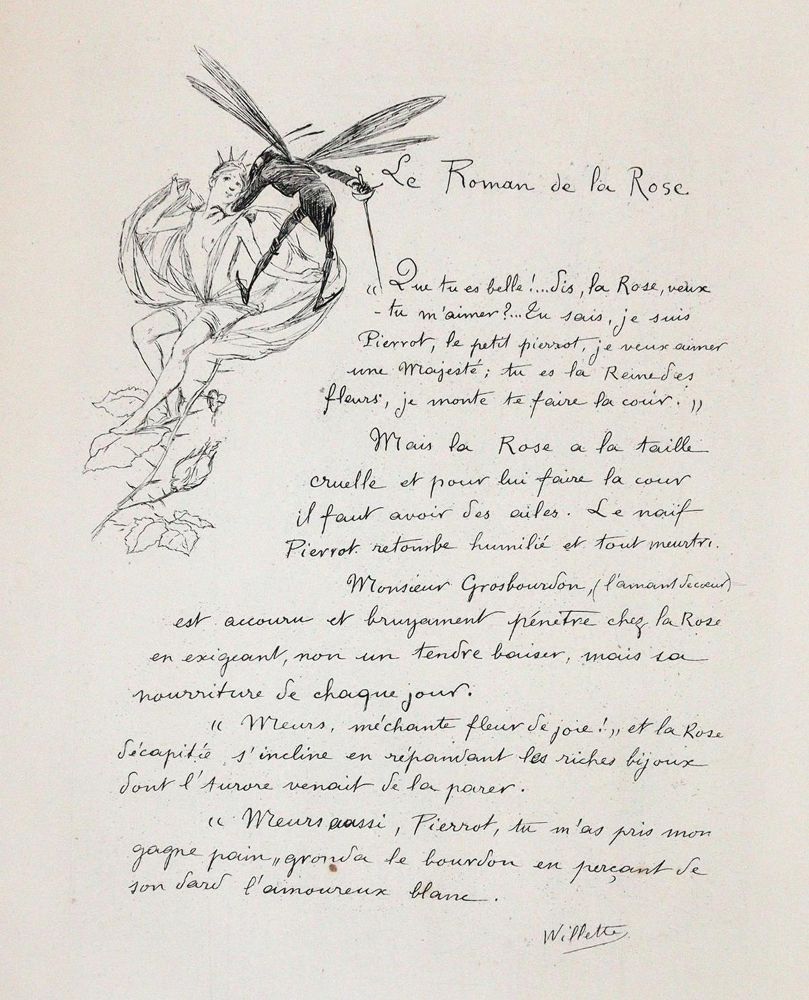 Le Roman de la Rose
« Que tu es belle !... dis, la Rose, veux
-tu m'aimer ?... Tu sais, je suis
Pierrot, le petit pierrot, je veux aimer
une Majesté ; tu es la Reine des
fleurs, je monte te faire la cour. »
Mais la Rose a la taille
cruelle et pour lui faire la cour
il faut avoir des ailes. Le naïf
Pierrot retombe humilié et tout meurtri.
Monsieur Grosbourdon, (l'amant de cœur)
est accouru et bruyament pénètre chez la Rose
en exigeant, non un tendre baiser, mais sa
nourriture de chaque jour.
« Meurs, méchante fleur de joie ! » et la Rose
décapitée s'incline en répandant les riches bijoux
dont l'Aurore venait de la parer.
« Meurs aussi, Pierrot, tu m'as pris mon
gagne pain » gronda le bourdon en perçant de
son dard l'amoureux blanc.
Willette